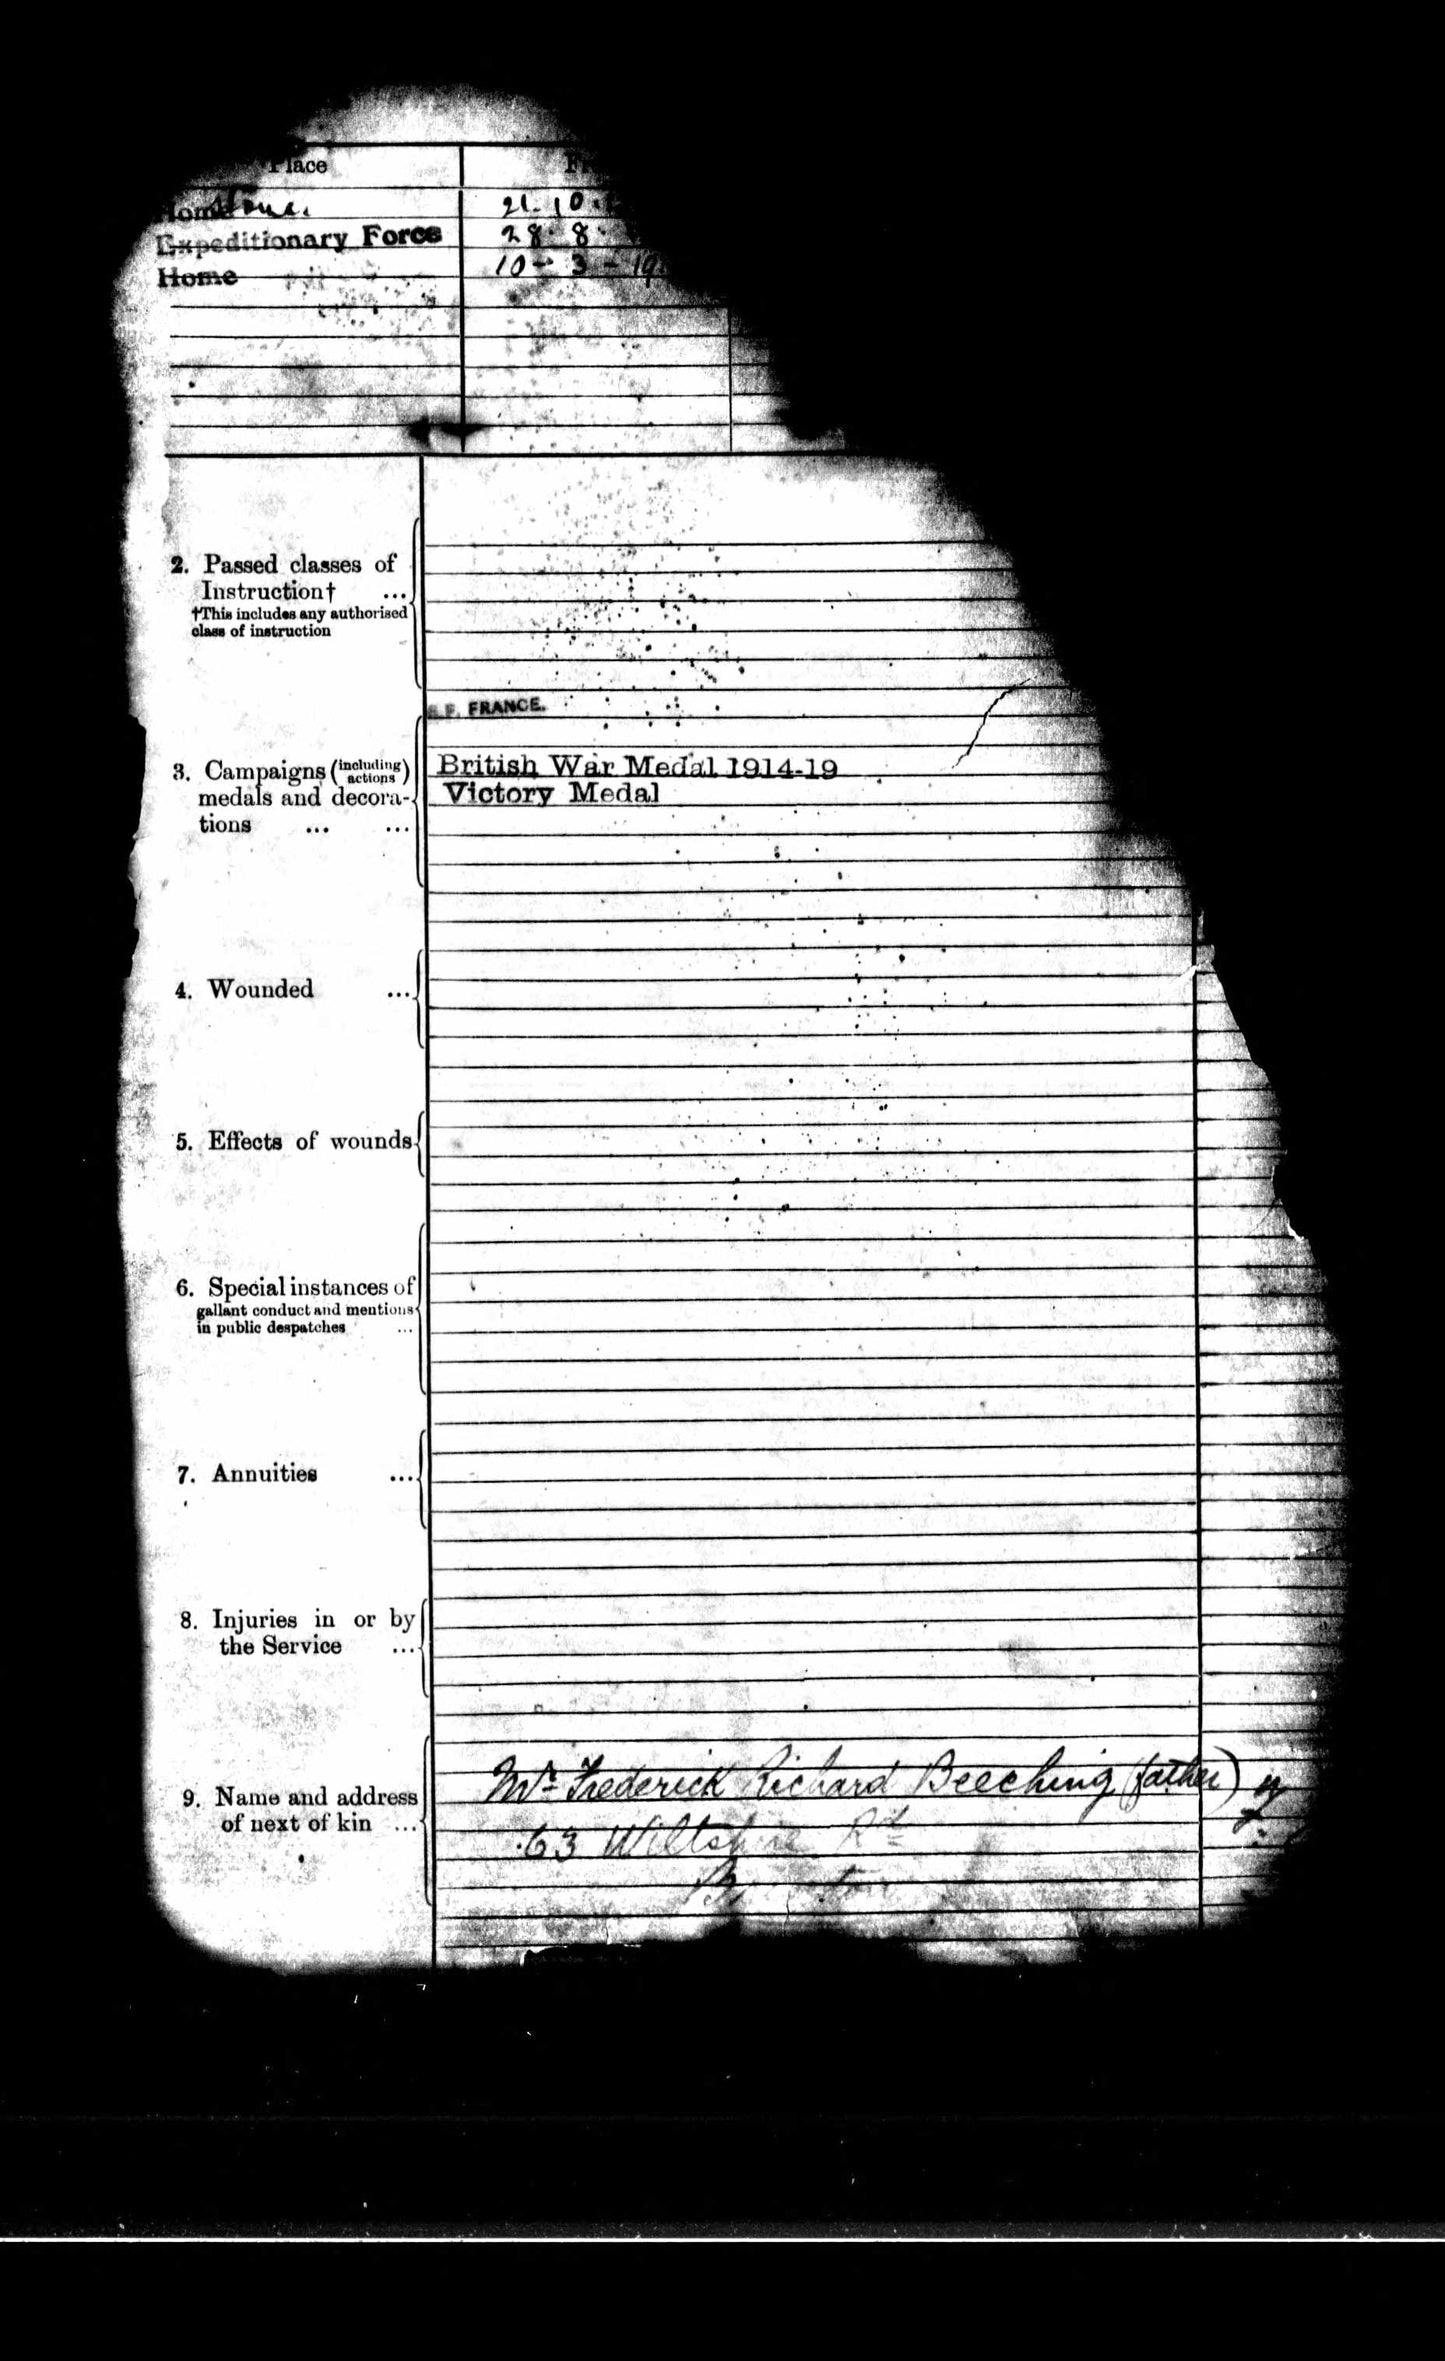 Place
Home Home.
21. 10.
Expeditionary Force
28. 8.
Home
10 - 3 - 19
2. Passed classes of
Instruction† ...
†This includes any authorised
class of instruction
E.F. FRANCE.
3. Campaigns (including actions)
medals and decora-
tions ... ...
British War Medal 1914-19
Victory Medal
4. Wounded ...
5. Effects of wounds
6. Special instances of
gallant conduct and mentions
in public despatches ...
7. Annuities ...
8. Injuries in or by
the Service ...
9. Name and address
of next of kin ...
Mr Frederick Richard Beeching (father)
63 Wiltshire Rd